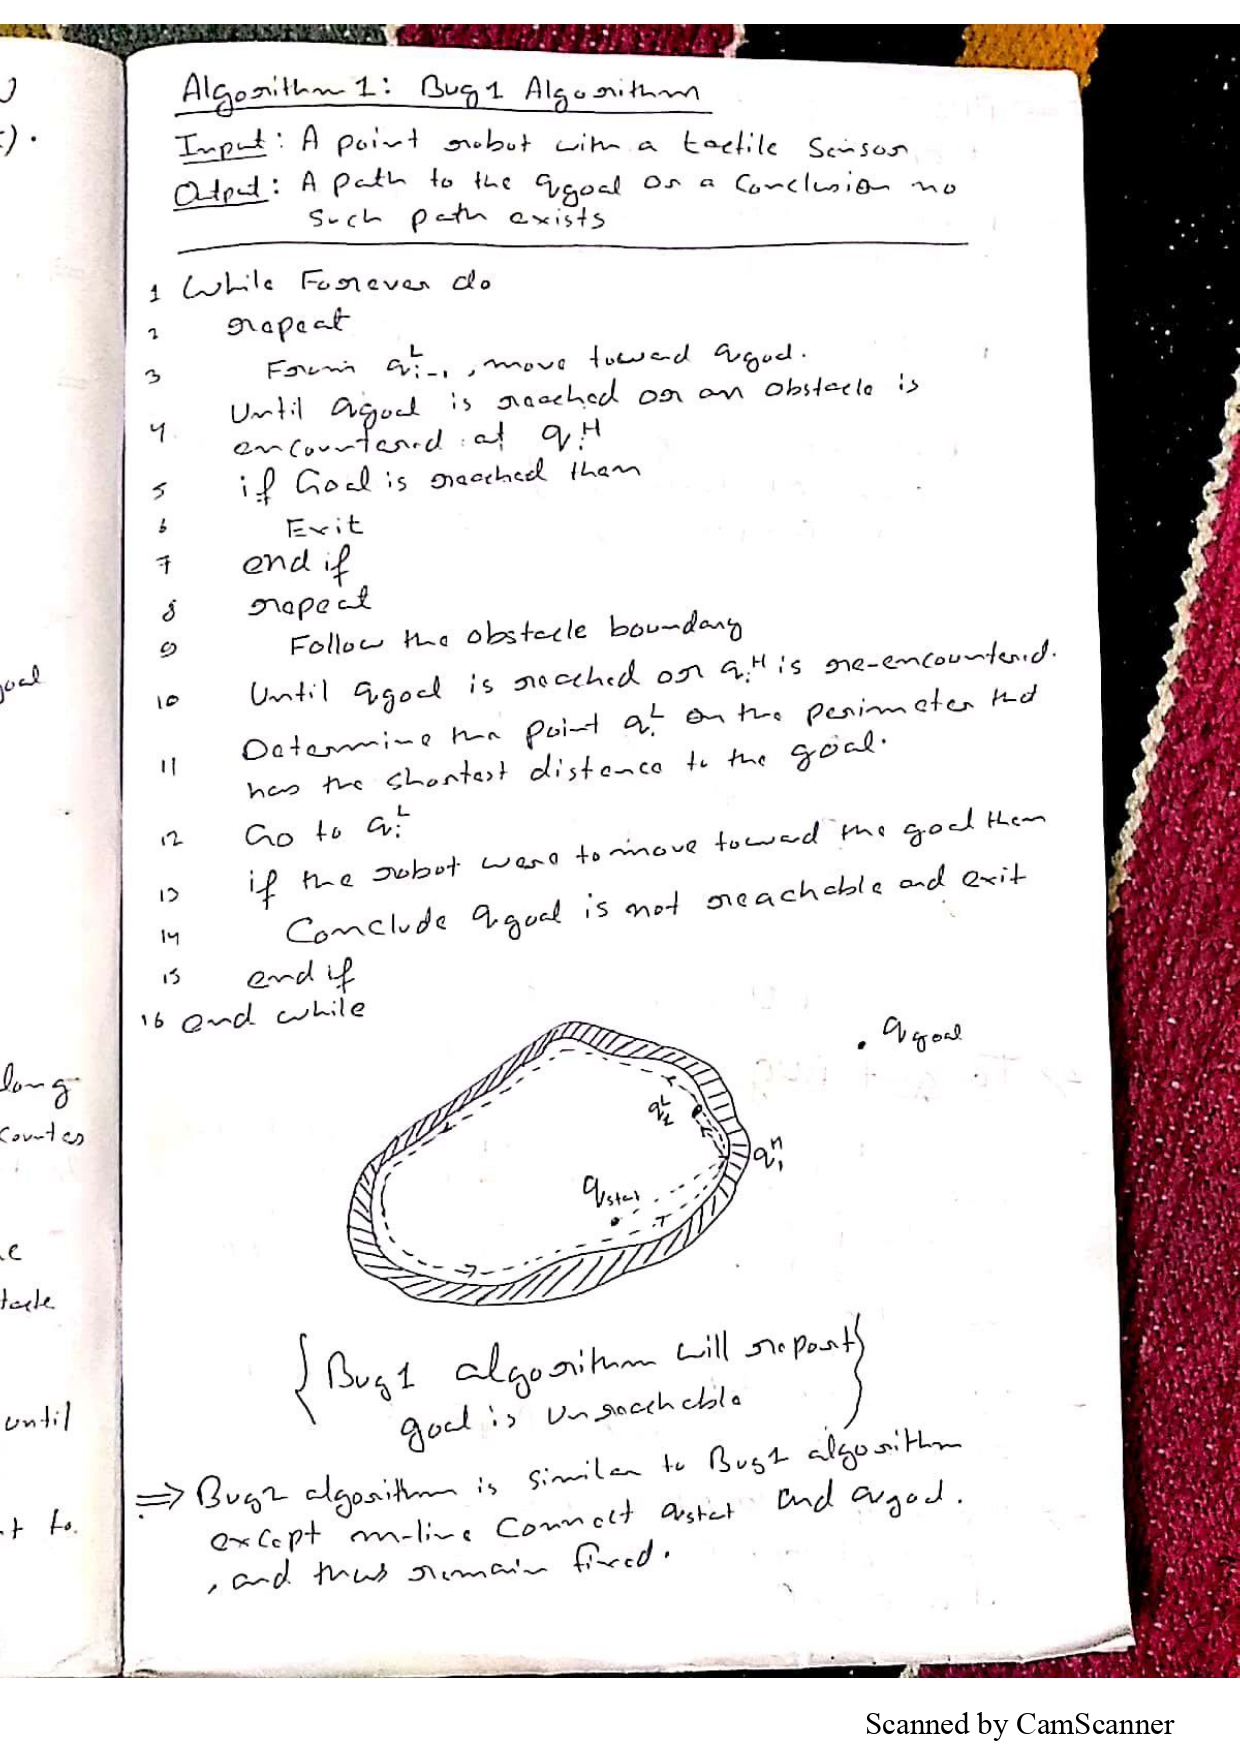 Algorithm 1: Bug1 Algorithm
Input: A point robot with a tactile Sensor
Output: A path to the qgoal or a Conclusion no
such path exists
1 While Forever do
2 repeat
3 From qᴸi-1, move toward qgoal.
4 Until qgoal is reached or an obstacle is
encountered at qiᴴ
5 if Goal is reached then
6 Exit
7 end if
8 repeat
9 Follow the obstacle boundary
10 Until qgoal is reached or qiᴴ is re-encountered.
11 Determine the point qiᴸ on the perimeter that
has the shortest distance to the goal.
12 Go to qiᴸ
13 if the robot were to move toward the goal then
14 Conclude qgoal is not reachable and exit
15 end if
16 end while
qgoal
qᴸ
q1ᴴ
qstart
{Bug1 algorithm will report}
goal is unreachable
⇒ Bug2 algorithm is similar to Bug1 algorithm
except m-line Connect qstart and qgoal.
, and thus remain fixed.
U
) .
goal
long
tacle
until
t to.
Scanned by CamScanner